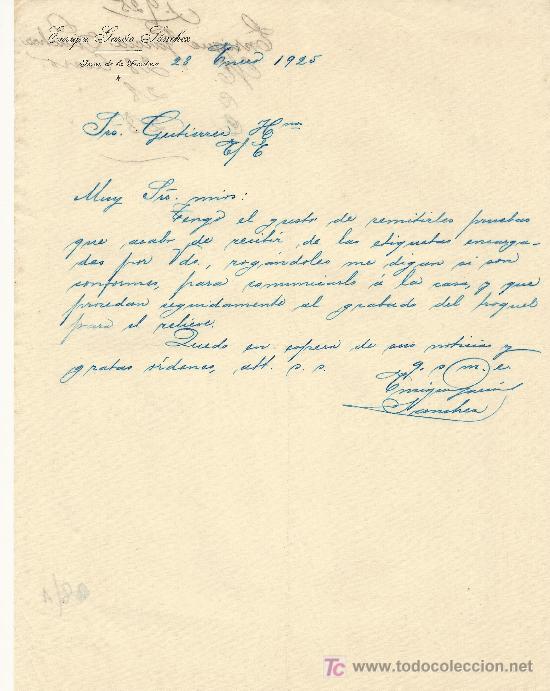 Enrique García Sánchez
Jerez de la Frontera
28 Enero 1925
Srs. Gutierrez Hnos
E/E
Muy Srs. mios:
Tengo el gusto de remitirles pruebas
que acabo de recibir de las etiquetas encarga-
das por Vds., rogándoles me digan si son
conformes, para comunicarlo á la casa, y que
procedan seguidamente al grabado del troquel
para el relieve.
Quedo en espera de sus noticias y
gratas órdenes, att. s. s.
q. s. m. e.
Enrique García
Sanchez
TC www.todocoleccion.net